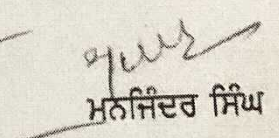 ਮਨਜਿੰਦਰ ਸਿੰਘ